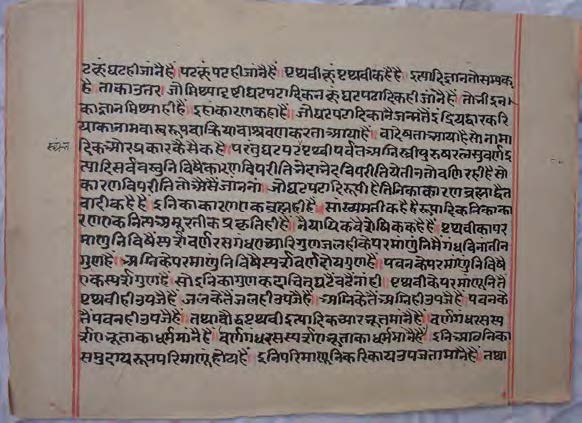 टकूं घट ही जांनै है॥ पटकूं पट ही जांनै है॥ पृथ्वीकूं पृथ्वी कहै है॥ इत्यादि ज्ञान तो सम्यक्
है॥ ताका उत्तर॥ जो मिथ्यादृष्टी घट पटादिकनकूं घट पटादिक ही जांनै है॥ तो भी इन
का ज्ञान मिथ्या ही है॥ इहां कारण कहा है॥ जो घट पटादिकनै जनमतै इंद्रियद्वारकरि
याका नाम वा स्वरूप वा क्रिया वा श्रवण करता आया है॥ वा देषता आया है सो नामा
दिक और प्रकार कैसैं कहै॥ परंतु घट पट पृथ्वी पर्वत अग्नि स्त्री पुरुष रत्न सुवर्ण इ
त्यादि सर्व वस्तुनि विषै कारण विपरीति भेदाभेद विपरीति ये तीन तो वणि रही है सो
कारण विपरीति तो अैसैं जाननां॥ जो घट पटादि रूपी है तिनिका कारण ब्रह्माद्वैत
वादी कहै है॥ इनिका कारण एक ब्रह्म ही है॥ सांख्यमती कहै है रूपादिकनिका का
रण एक नित्य अमूरतीक प्रकृति ही है॥ नैयायिक वैशेषिक कहै है॥ पृथ्वी का पर
माणुनि विषै स्पर्श वर्ण रस गंध च्यारि गुण जल ही के परमाणुनिमै गंध विना तीन
गुण है॥ अग्नि के परमाणुनि विषै स्पर्श वर्ण दोय गुण है॥ पवन के परमाणुनि विषै
एक स्पर्श गुण है॥ सो इनिका गुण कदाचित् घटै वटै नांही॥ पृथ्वी के परमाणुनितै
पृथ्वी ही उपजै है॥ जल कैतैं जल ही उपजै है॥ अग्नि कैतैं अग्नि ही उपजै है॥ पवन कै
तैं पवन ही उपजै है॥ तथा बौद्ध पृथ्वी इत्यादि च्यार भूत मानै है॥ वर्ण गंध रस स्प
र्श ए भूता का धर्म मानै है॥ वर्ण गंध रस स्पर्श ए भूता का धर्म मानै है॥ इनि आठनिका
समुदाय रूप परिमाणु होय है॥ इनि परिमाणुनि करि काय उपजता मानै है॥ तथा